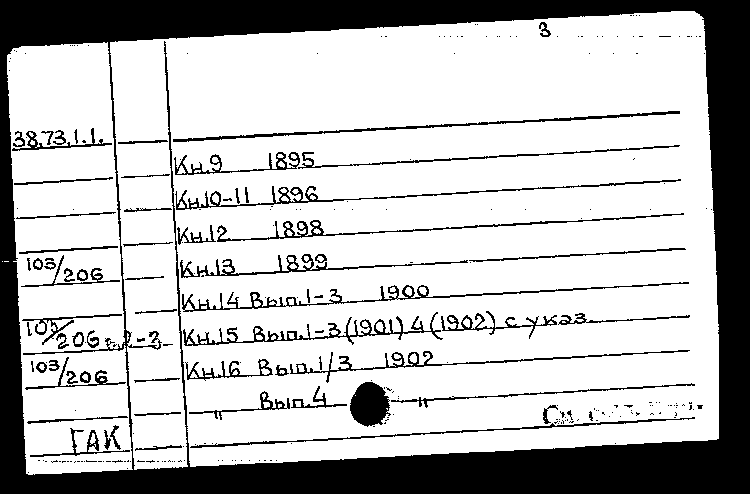 3
38.73.1.1.
Кн.9 1895
Кн.10-11 1896
Кн.12 1898
103/206 Кн.13 1899
Кн.14 Вып.1-3 1900
103/206 в.2-3 Кн.15 Вып.1-3 (1901) 4 (1902) с указ.
103/206 Кн.16 Вып.1/3 1902
" Вып.4 "
См.
ГАК